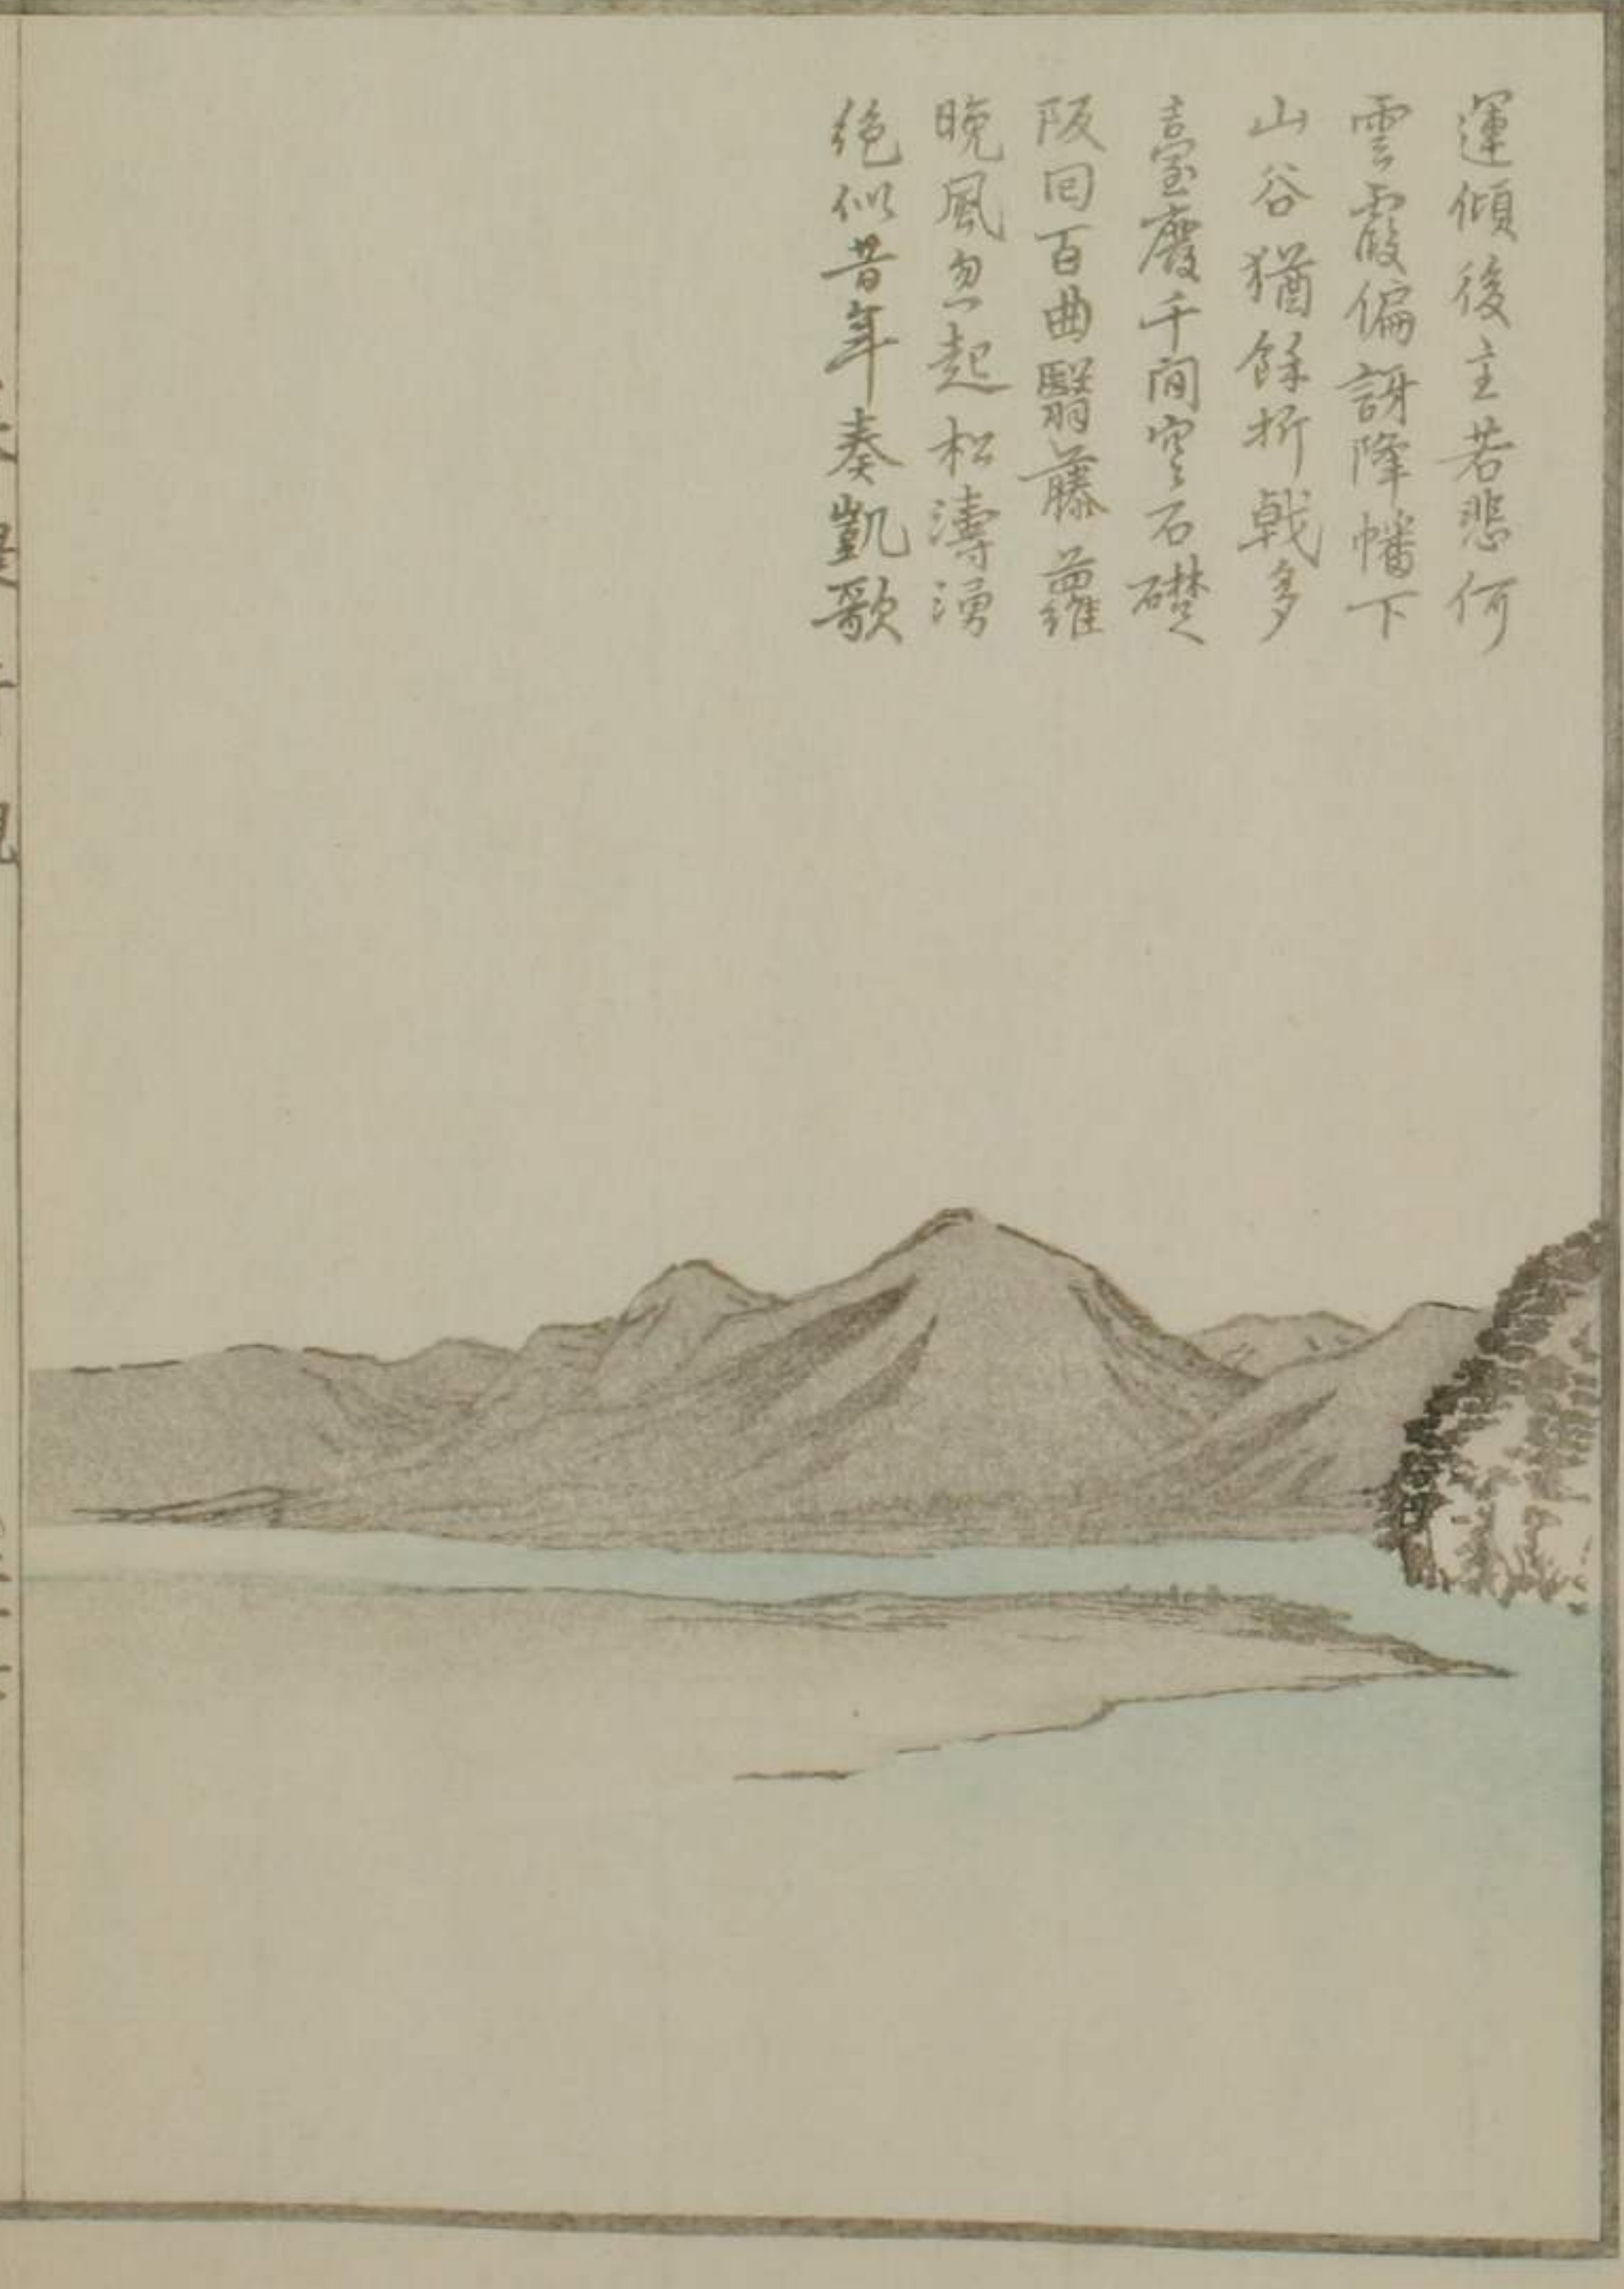 運傾後主若悲何
雲霞偏訝降幡下
山谷猶餘折戟多
臺廢千間空石礎
阪回百曲翳藤蘿
晚風忽起松濤湧
絶似昔年奏凱歌